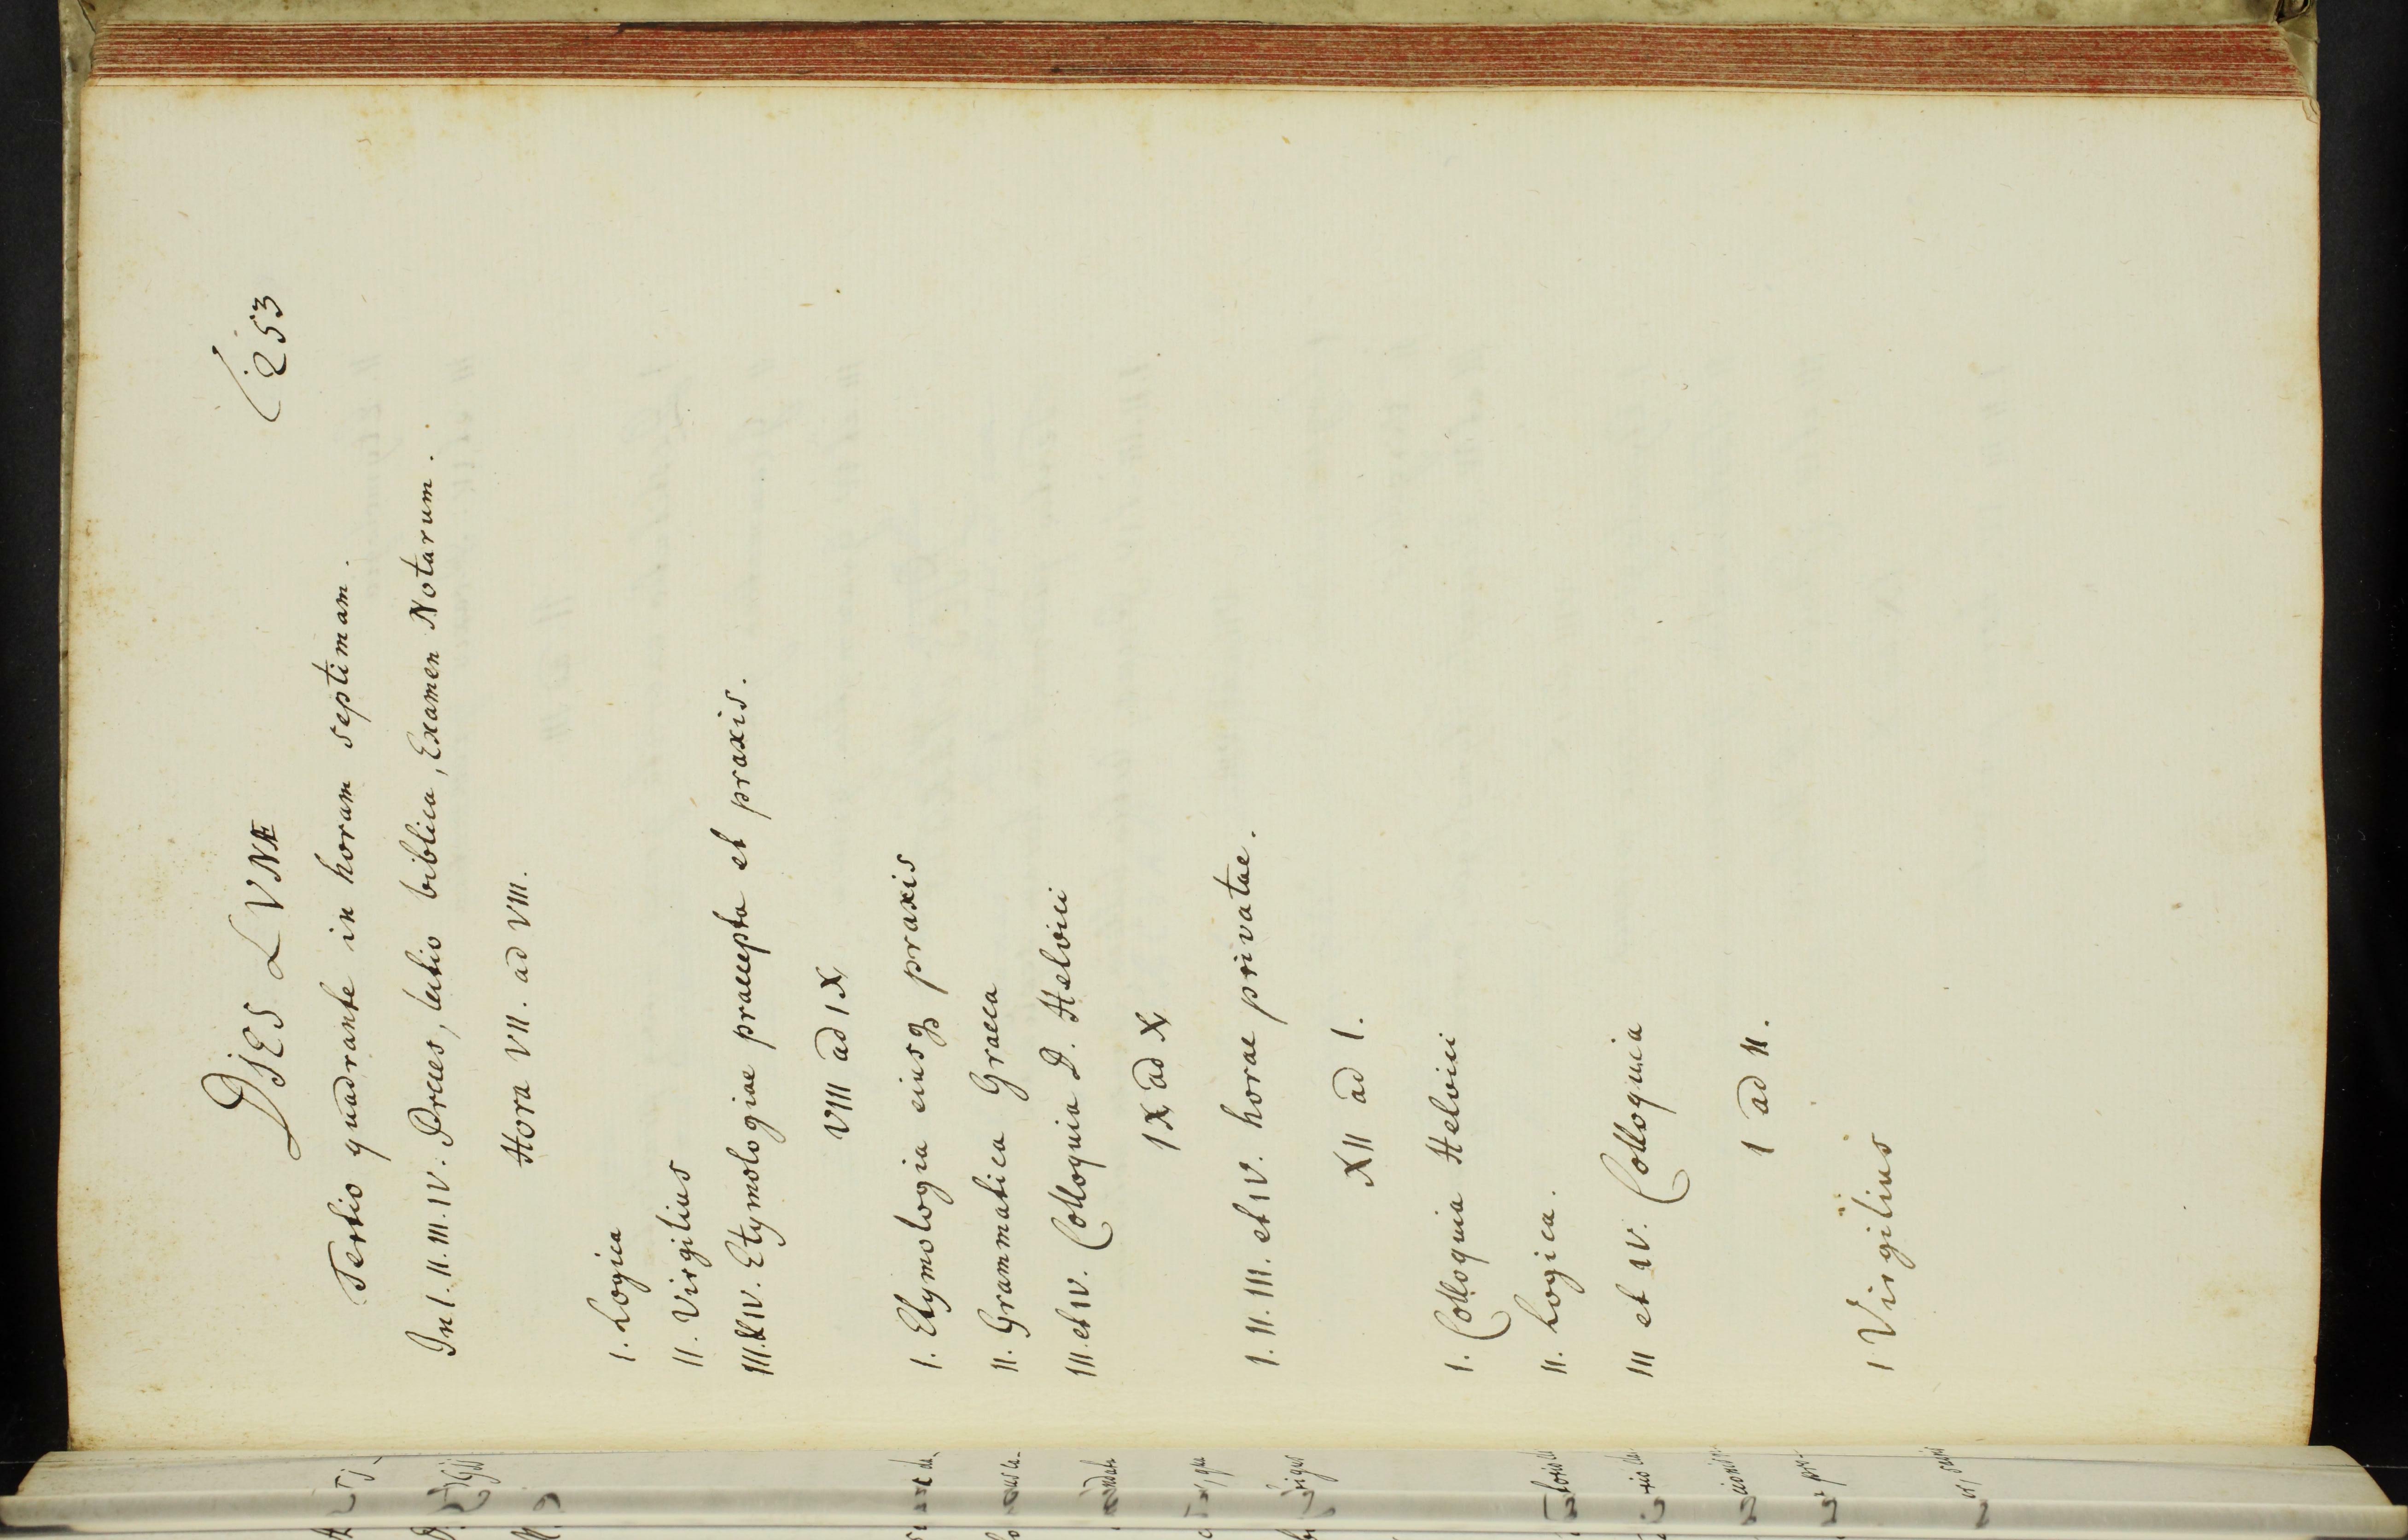 253
DIES LVNÆ
Tertio quadrante in horam septimam.
In I. II. III. IV. Preces, lectio biblica, Examen Notarum.
Hora VII. ad VIII.
I. Logica
II. Virgilius
III. & IV. Etymologiae praecepta et praxis.
VIII ad IX
I. Etymologia eiusq praxis
II. Grammatica Graeca
III. et IV. Colloquia D. Helvici
IX ad X
I. II. III. et IV. horae privatae.
XII ad I.
I. Colloquia Helvici
II. Logica.
III et IV. Colloquia
I ad II.
I Virgilius